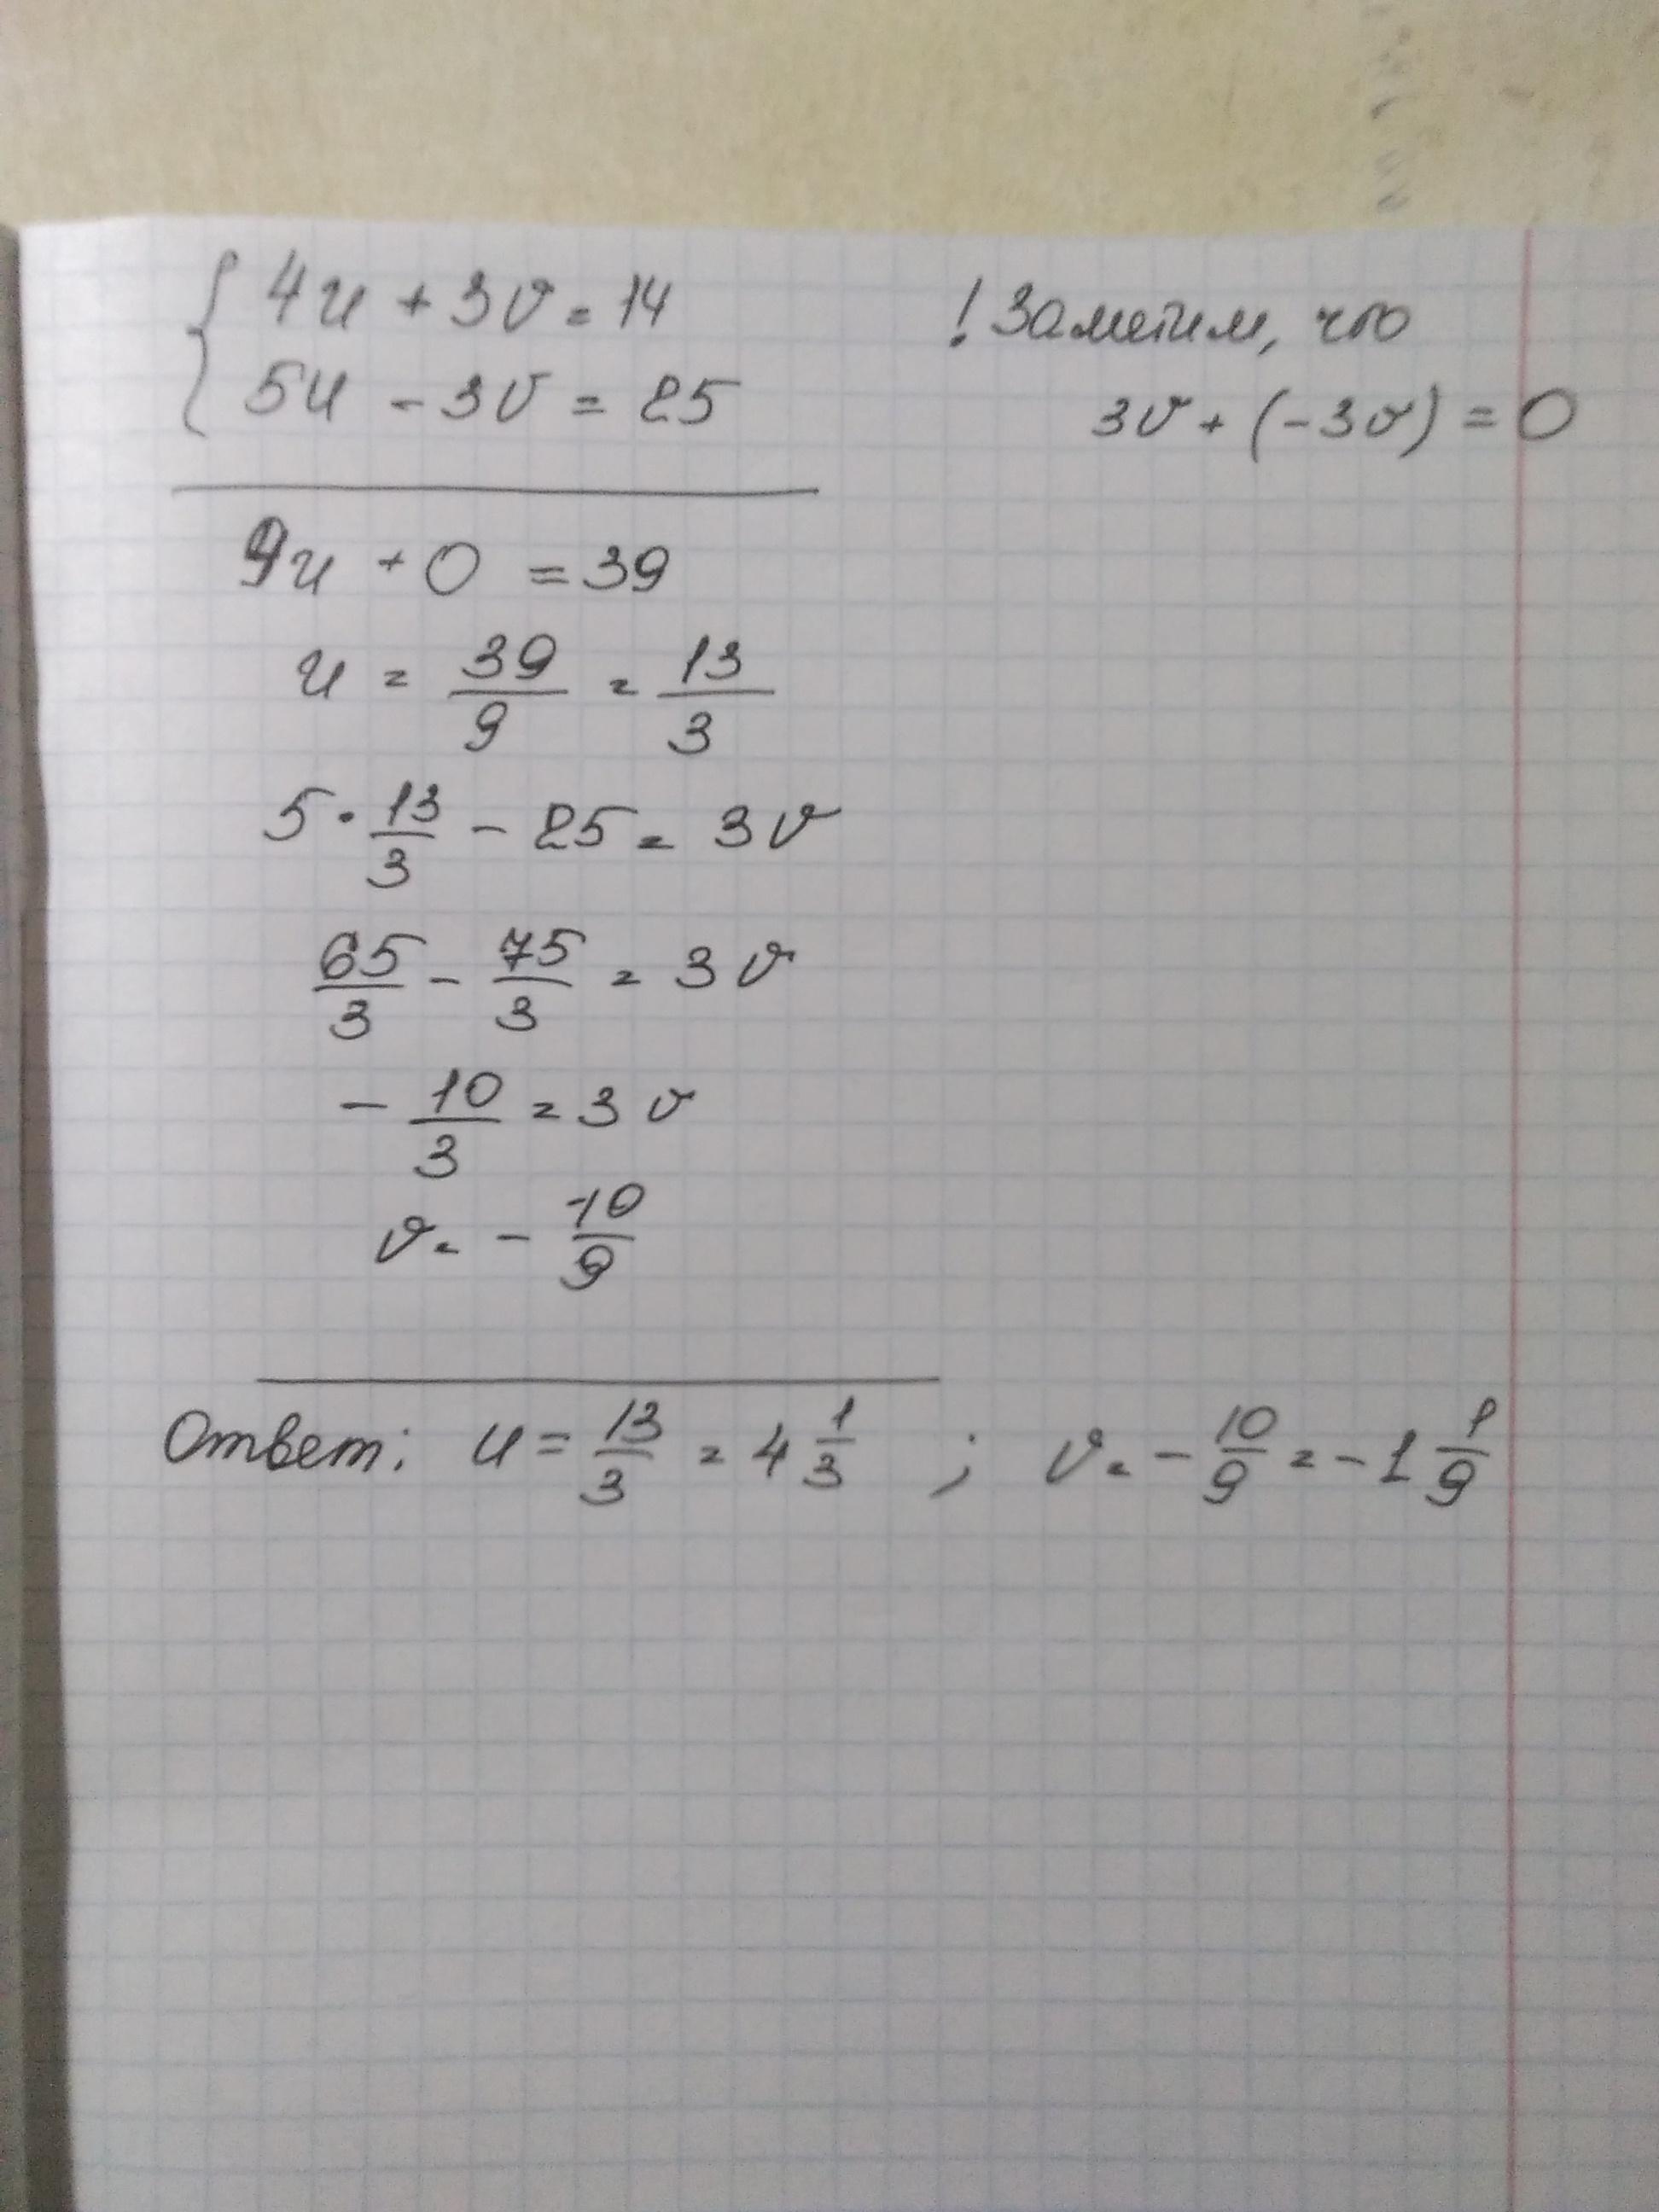 4u + 3v = 14
5u - 3v = 25
! Заметим, что
3v + (-3v) = 0
9u + 0 = 39
u = 39/9 = 13/3
5 · 13/3 - 25 = 3v
65/3 - 75/3 = 3v
- 10/3 = 3v
v = - 10/9
Ответ: u = 13/3 = 4 1/3 ; v = - 10/9 = -1 1/9